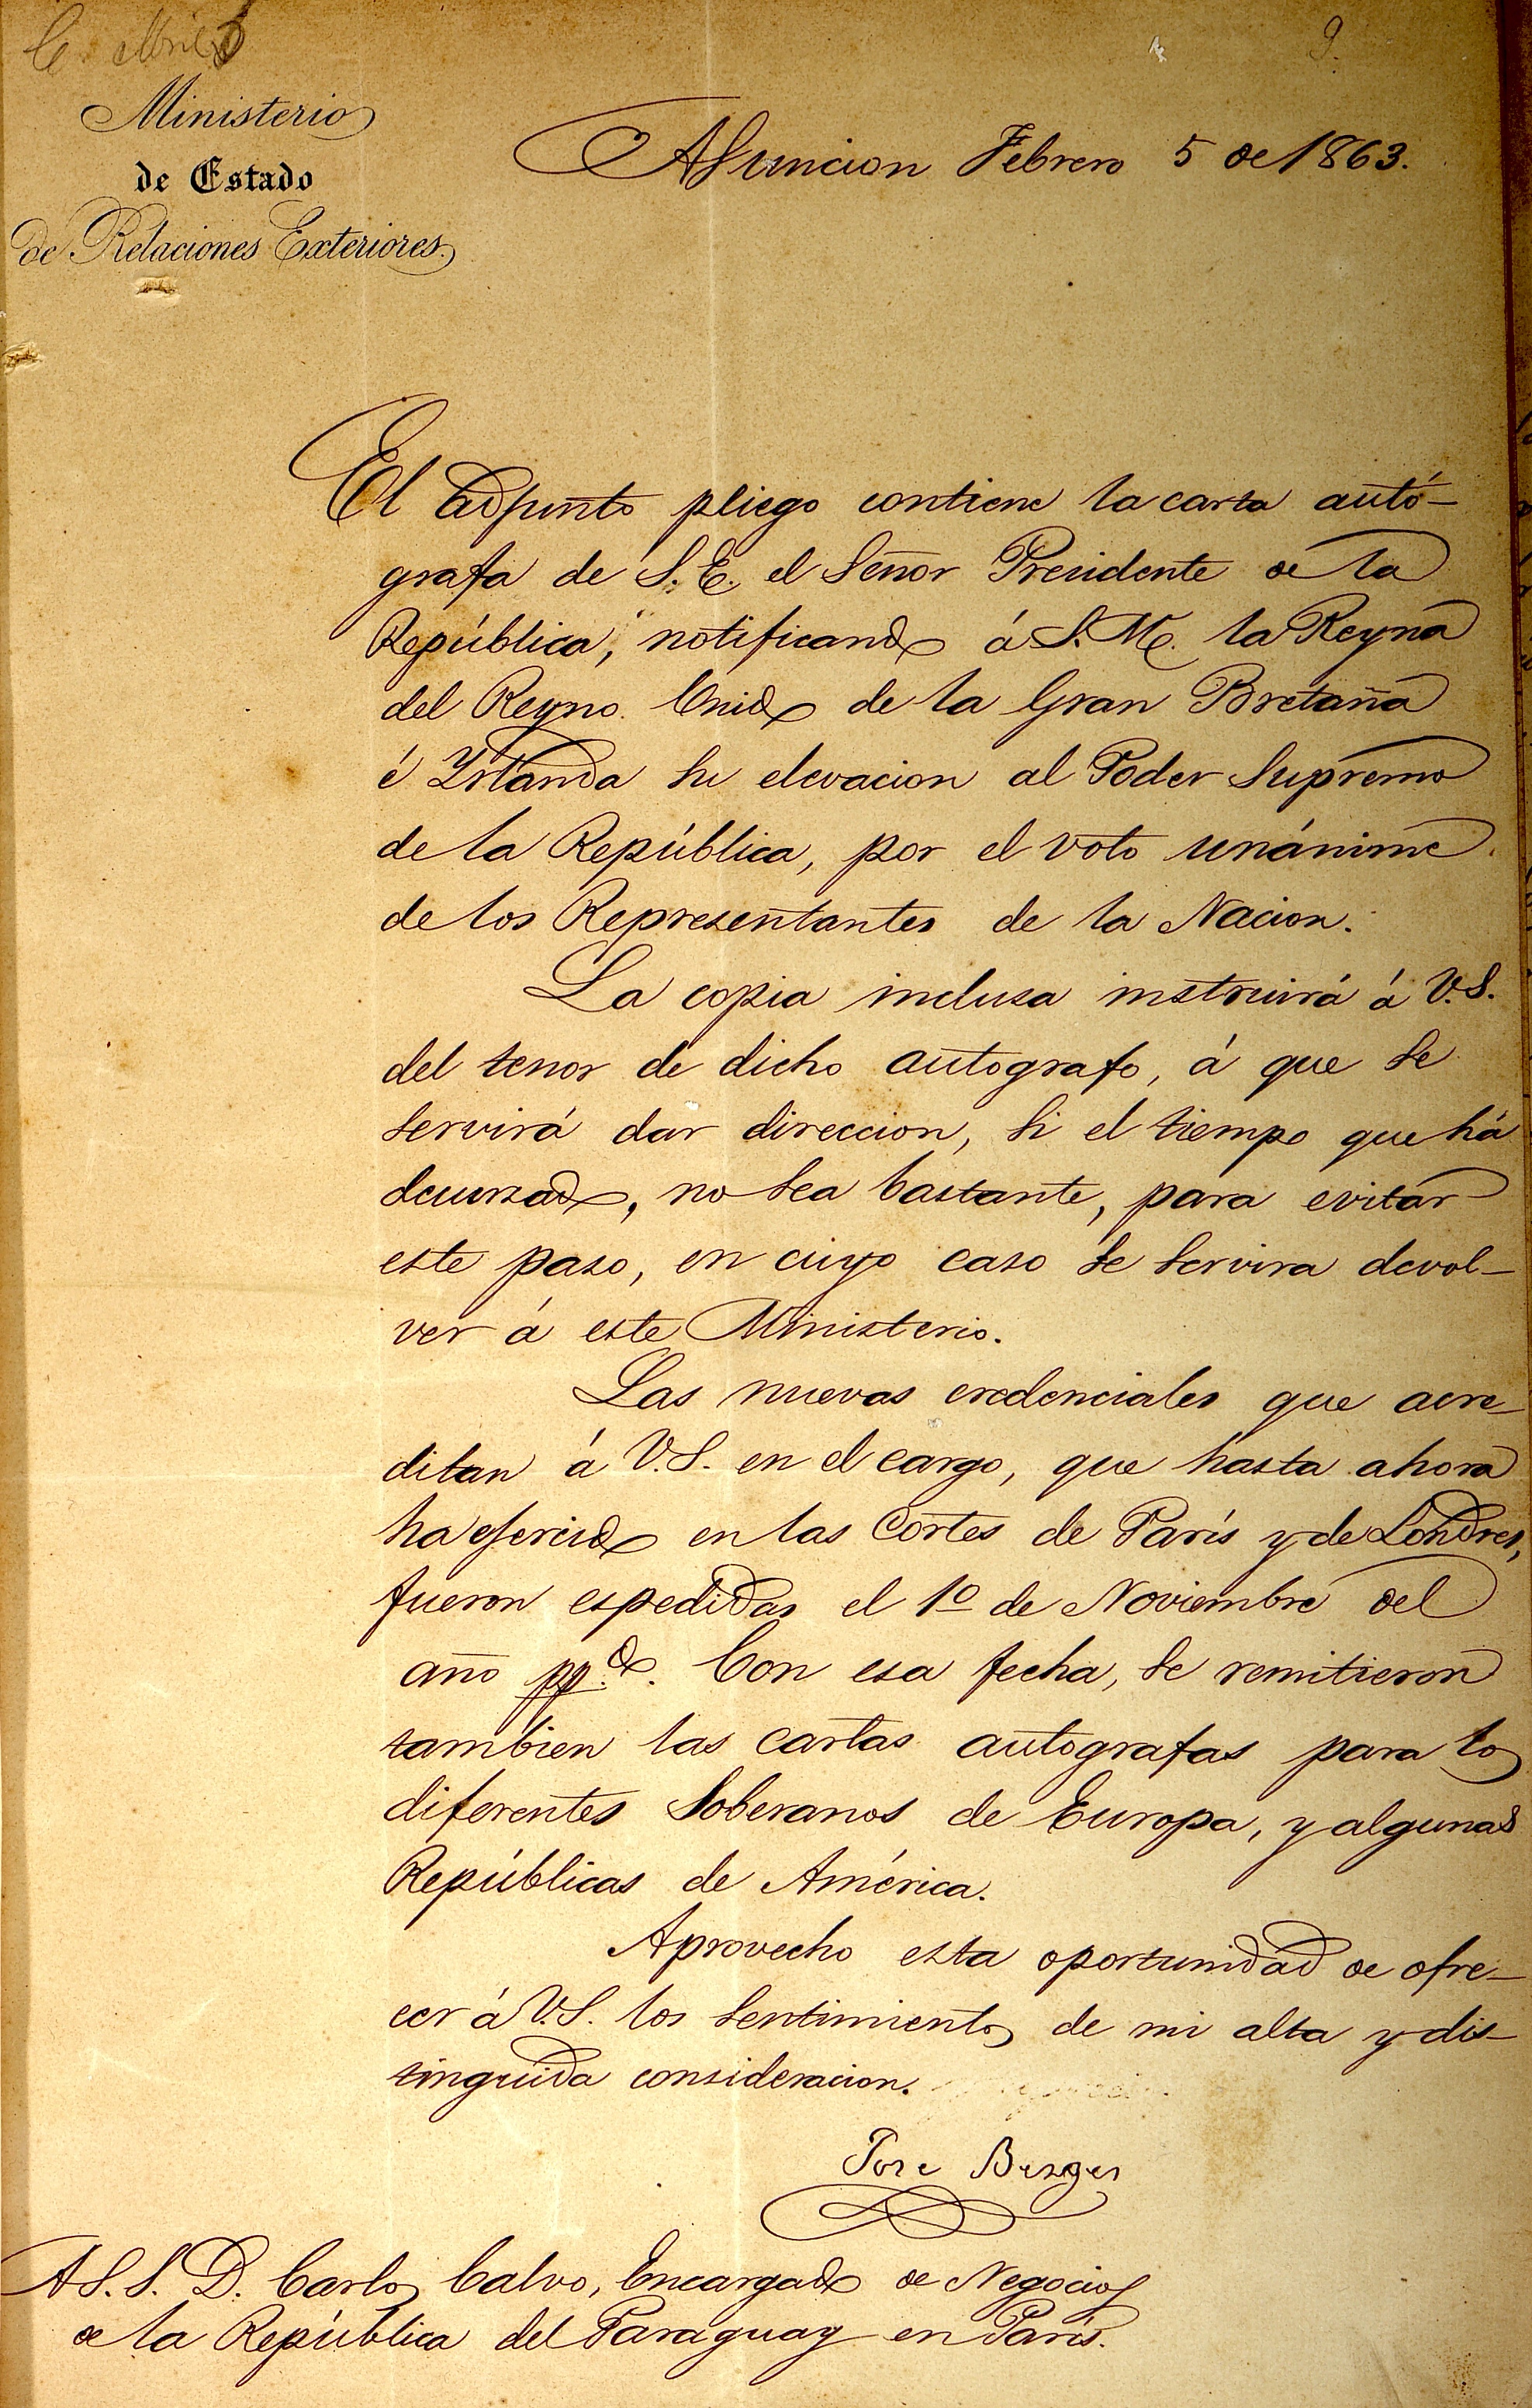 9.
Ministerio
de Estado
de Relaciones Exteriores.
Asuncion Febrero 5 de 1863.
El adjunto pliego contiene la carta autó-
grafa de S. E. el Señor Presidente de la
República, notificando á S. M. la Reyna
del Reyno Unido de la Gran Bretaña
é Yrlanda su elevacion al Poder Supremo
de la República, por el voto unánime
de los Representantes de la Nacion.
La copia inclusa instruirá á V.S.
del tenor de dicho autografo, á que se
servirá dar direccion, si el tiempo que há
decursado, no sea bastante, para evitar
este paso, en cuyo caso se servira devol-
ver á este Ministerio.
Las nuevas credenciales que acre-
ditan á V.S. en el cargo, que hasta ahora
ha ejercido en las Cortes de París y de Londres,
fueron espedidas el 1º de Noviembre del
año pp.do. Con esa fecha, se remitieron
tambien las cartas autografas para los
diferentes Soberanos de Europa, y algunas
Repúblicas de América.
Aprovecho esta oportunidad de ofre-
cer á V.S. los sentimientos de mi alta y dis-
tinguida consideracion.
Jose Berges
A S. S. D. Carlos Calvo, Encargado de Negocios
de la República del Paraguay en París.